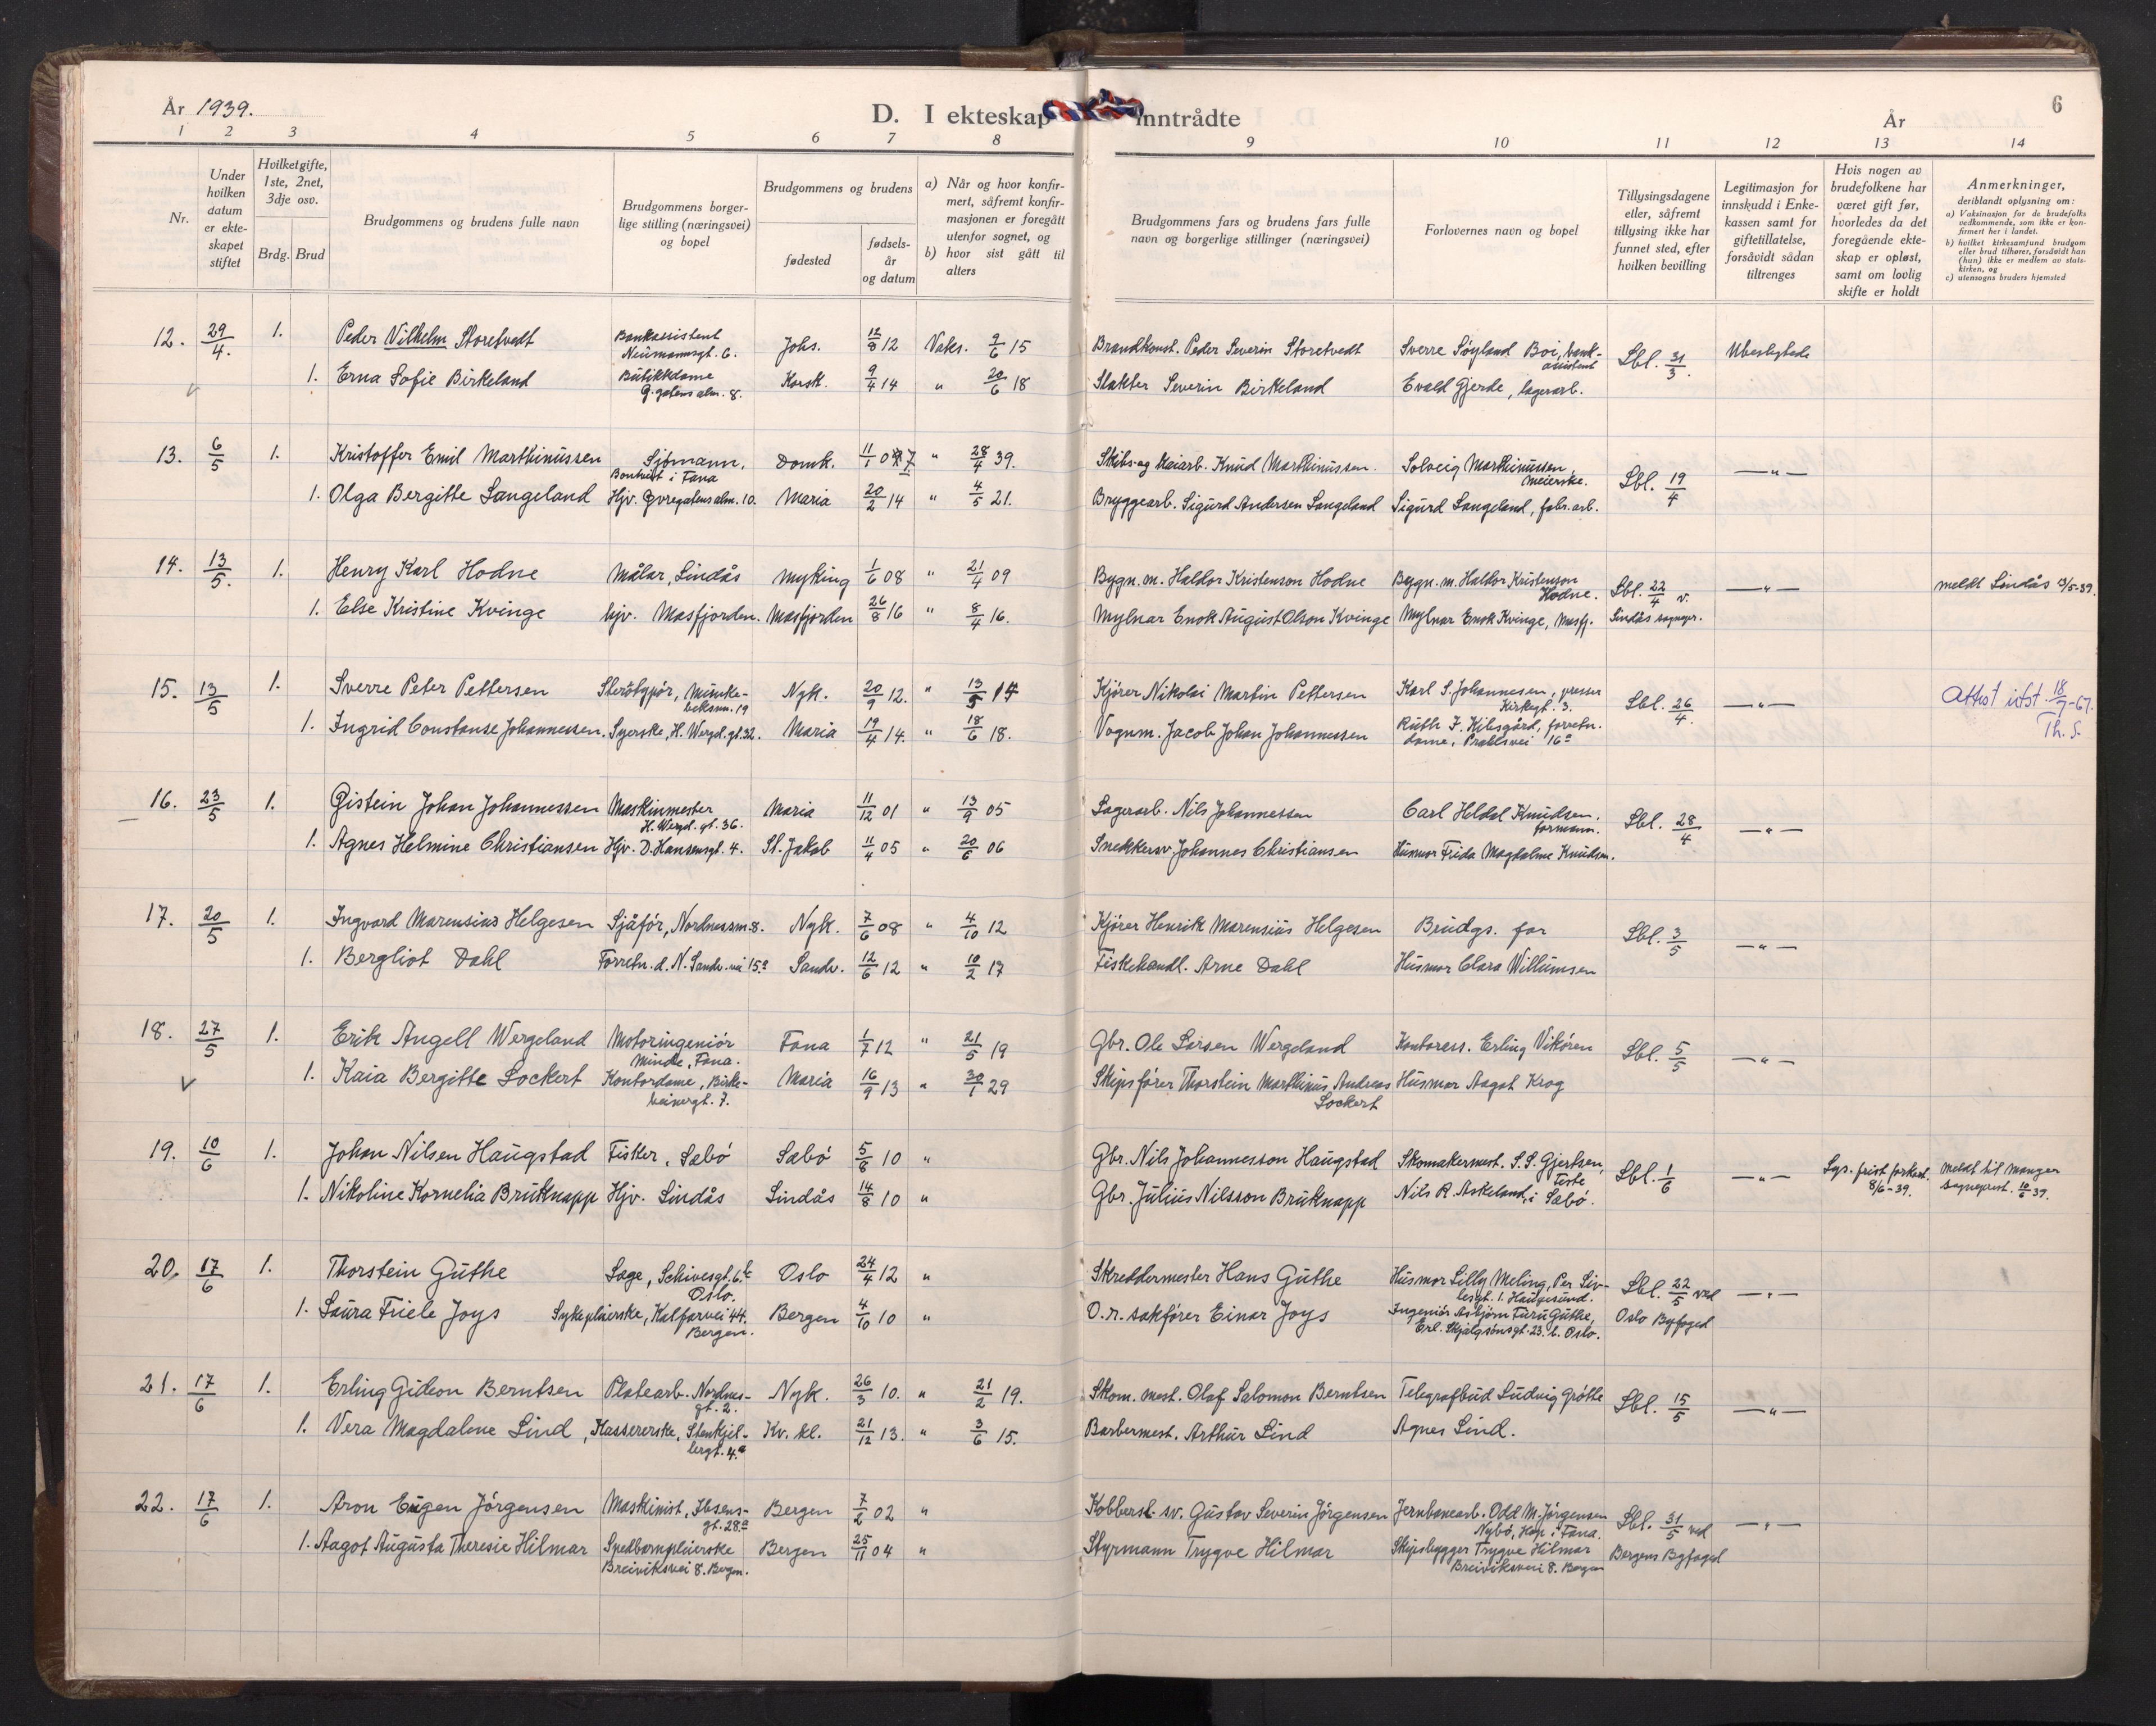 År 1939.
D. I ekteskap inntrådte
År
6
1 2 3 4 5 6 7 8 9 10 11 12 13 14
Nr.
Under hvilken datum er ekteskapet stiftet
Hvilket gifte, 1ste, 2net, 3dje osv.
Brdg. Brud
Brudgommens og brudens fulle navn
Brudgommens borgerlige stilling (næringsvei) og bopel
Brudgommens og brudens
fødested
fødselsår og datum
a) Når og hvor konfirmert, såfremt konfirmasjonen er foregått utenfor sognet, og
b) hvor sist gått til alters
Brudgommens fars og brudens fars fulle navn og borgerlige stillinger (næringsvei)
Forlovernes navn og bopel
Tillysingsdagene eller, såfremt tillysing ikke har funnet sted, efter hvilken bevilling
Legitimasjon for innskudd i Enkekassen samt for giftetillatelse, forsåvidt sådan tiltrenges
Hvis nogen av brudefolkene har været gift før, hvorledes da det foregående ekteskap er opløst, samt om lovlig skifte er holdt
Anmerkninger, deriblandt oplysning om:
a) Vaksinasjon for de brudefolks vedkommende, som ikke er konfirmert her i landet.
b) hvilket kirkesamfund brudgom eller brud tilhører, forsåvidt han (hun) ikke er medlem av statskirken, og
c) utensogns bruders hjemsted
12. 29/4. 1. Peder Vilhelm Storetvedt Bankassistent Neumannsgt. 6. Johs. 12/8 12 Vaks. 9/6 15 Brandkonst. Peder Severin Storetvedt Sverre Søyland Boi, bankassistent Lbl. 31/3. Ubeslegtede
1. Erna Sofie Birkeland Butikkdame Ø.gatens alm. 8. Korsk. 9/4 14 " 20/6 18 Slakter Severin Birkeland Evald Gjerde, lagerarb.
13. 6/5 1. Kristoffer Emil Marthinussen Sjömann, Bontveit i Fana Domk. 11/1 07 " 28/4 39. Skibs og Kaiarb. Knud Marthinussen. Solveig Marthinussen, meierske. Lbl. 19/4 —"—
1. Olga Bergitte Langeland Hjv. Øvregatens alm. 10. Maria 20/2 14 " 4/5 21. Bryggearb. Sigurd Andersen Langeland Sigurd Langeland, fabr.arb.
14. 13/5. 1. Henry Karl Hodne Målar, Lindås Myking 1/6 08 " 21/4 09 Bygn.m. Haldor Kristenson Hodne Bygn.m. Haldor Kristenson Hodne. Lbl. 22/4 v. Lindås sogнepr. —"— meldt Lindås 13/5-39.
1. Else Kristine Kvinge hjv. Masfjorden. Masfjorden 26/8 16 " 8/4 16. Mylnar Enok August Olson Kvinge Mylnar Enok Kvinge, Masfj.
15. 13/5 1. Sverre Peter Pettersen Sterotypör, Munkebeksm. 19 Nyk. 20/9 12. " 13/5 17 Kjörer Nikolai Martin Pettersen Karl S. Johannesen, presser Kirkegt. 3. Lbl. 26/4. —"— Attest utst. 18/7-67. Th. S.
1. Ingrid Constanse Johannessen. Syerske, H. Wergel. gt. 32. Maria 19/4 14. " 18/6 18. Vognm. Jacob Johan Johannessen Ruth J. Hilsgård, forretn.dame, Prahlsvei 16a
16. 23/5 1. Gistein Johan Johannessen Maskinmester H. Wergel. gt. 36. Maria 11/12 01 " 13/9 05 Lagerarb. Nils Johannessen Carl Heldal Knudsen, formann. Lbl. 28/4 —"—
1. Agnes Helmine Christiansen Hjv. D. Hansensgt. 4. St. Jakob 11/4 05 " 20/6 06 Snekkersv. Johannes Christiansen Husmor Frida Magdalene Knudsen.
17. 20/5 1. Ingvard Marensius Helgesen Sjåför, Nordnessm. 8. Nyk. 7/6 08 " 4/10 12 Kjörer Henrik Marensius Helgesen Brudgs. far Lbl. 3/5 —"—
1. Bergliot Dahl Forretn.d. N. Sandv. vei 15a Sandv. 12/6 12 " 10/2 17 Fiskehandl. Arne Dahl Husmor Clara Willumsen
18. 27/5 1. Erik Angell Wergeland Motoringeniör Minde, Fana. Fana 1/7 12 " 21/5 19 Gbr. Ole Larsen Wergeland Kontorass. Erling Vikören Lbl. 5/5 —"—
1. Kaia Bergitte Lockert Kontordame, Birkebeinergt. 7. Maria 16/9 13 " 30/1 29 Skipsförer Thorstein Marthinus Andreas Lockert Husmor Aagot Krog
19. 10/6 1. Johan Nilsen Haugstad Fisker, Sæbö Sæbö 5/6 10 " Gbr. Nils Johannesson Haugstad Skomakermest. S.S. Gjertsen, Lbl. 1/6 —"— Lys. frist forkort. 8/6-39. Meldt til Manger sogneprest. 10/6 39.
1. Nikoline Kornelia Bruknapp Hjv. Lindås Lindås 14/8 10 " Gbr. Julius Nilsson Bruknapp Nils R. Askeland, i Sæbö.
20. 17/6 1. Thorstein Guthe Lage, Schivesgt. 6. b Oslo. Oslo 24/4 12 " Skreddermester Hans Guthe Husmor Lilly Meling, Per Sivlesgt. 1. Haugesund. Lbl. 22/5 ved Oslo Byfoged —"—
1. Laura Friele Joys Sykepleierske, Kalfarvei 44. Bergen. Bergen 4/10 10 " O.r. sakförer Einar Joys Ingeniör Asbjörn Furu Guthe, Erl. Skjalgsönsgt. 23. b. Oslo.
21. 17/6 1. Erling Gideon Berntsen Platearb. Nordnesgt. 2. Nyk. 26/3 10. " 21/2 19. Skom. mest. Olaf Salomon Berntsen Telegrafbud Ludvig Grötte Lbl. 15/5 —"—
1. Vera Magdalene Lind, Kassererske, Stenkjellergt. 4.a Kv. kl. 21/12 13. " 3/6 15. Barbermest. Arthur Lind Agnes Lind.
22. 17/6 1. Aron Eugen Jörgensen Maskinist, Ibsensgt. 28a Bergen 7/2 02 " Kobbersl. sv. Gustav Severin Jörgensen Jernbanearb. Odd M. Jörgensen Nybö, Hop i Fana. Lbl. 31/5 ved Bergens Byfoged —"—
1. Aagot Augusta Theresie Hilmar Spedbarnpleierske Breiviksvei 8. Bergen. Bergen 25/11 04 " Styrmann Trygve Hilmar Skipsbygger Trygve Hilmar Breiviksvei 8. Bergen